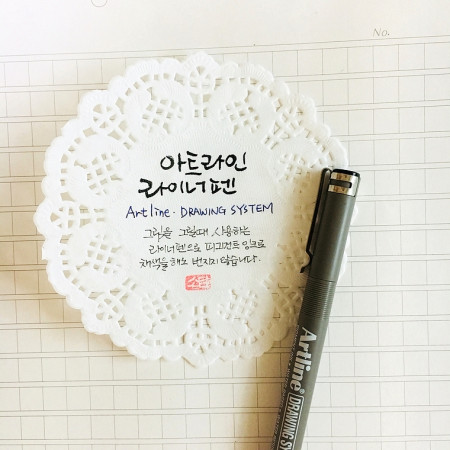 No.
아트라인
라이너펜
Artline · DRAWING SYSTEM
그림을 그릴때 사용하는
라이너펜으로 피그먼트 잉크로
채색을 해도 번지지 않습니다.
Artline
DRAWING S